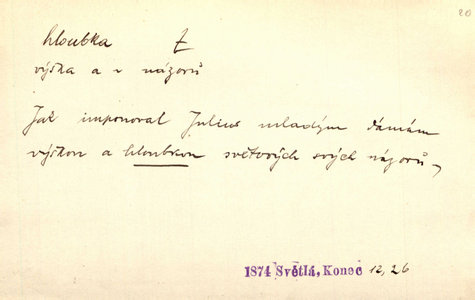 20
hloubka ž
výška a v názorů
Jak imponoval Julius mladým dámám
výškou a hloubkou světových svých názorů,
1874 Světlá, Konec 12, 26